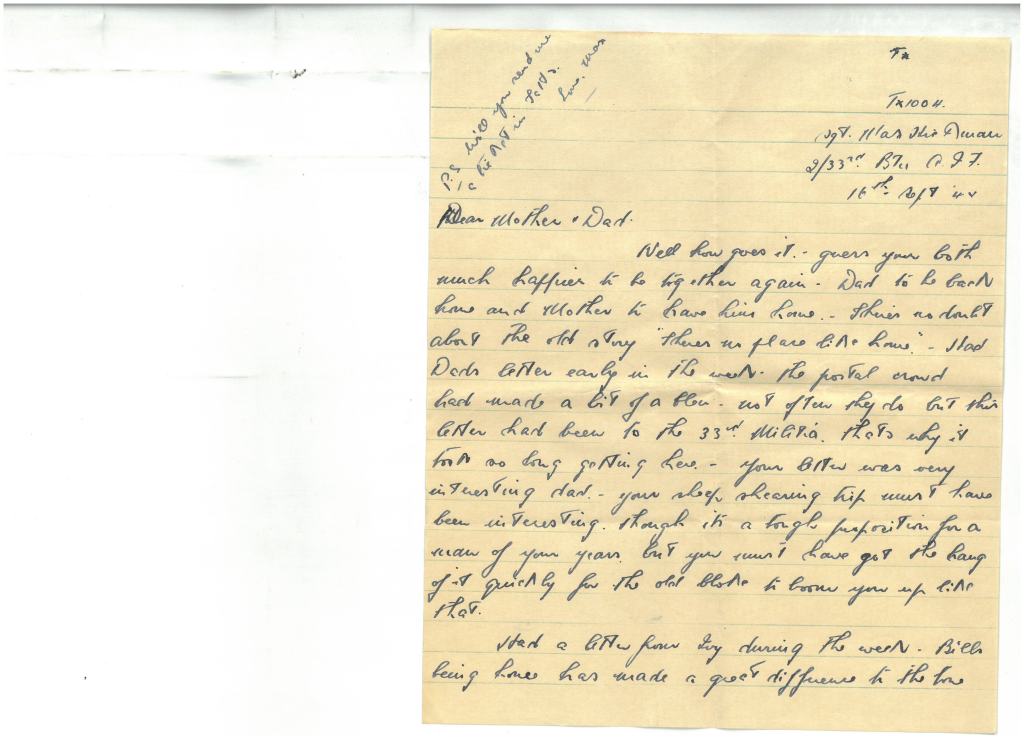 P.S. Will you send me
in
Love. Max
Tx
Tx1004.
Sgt. Max
2/33rd. Btn A.I.F.
16th Sept '44
Dear Mother & Dad.
Well how goes it. - guess your both
much happier to be together again - Dad to be back
home and Mother to have him home. - Theres no doubt
about the old story "theres no place like home" - Had
Dads letter early in the week. the postal crowd
had made a bit of a blew - not often they do but this
letter had been to the 33rd. Militia. thats why it
took so long getting here. - your letter was very
interesting dad. - your sheep shearing trip must have
been interesting. though its a tough proposition for a
man of your years. but you must have got the hang
of it quickly for the old bloke to boom you up like
that.
Had a letter from Ivy during the week - Bills
being home has made a great difference to the tone